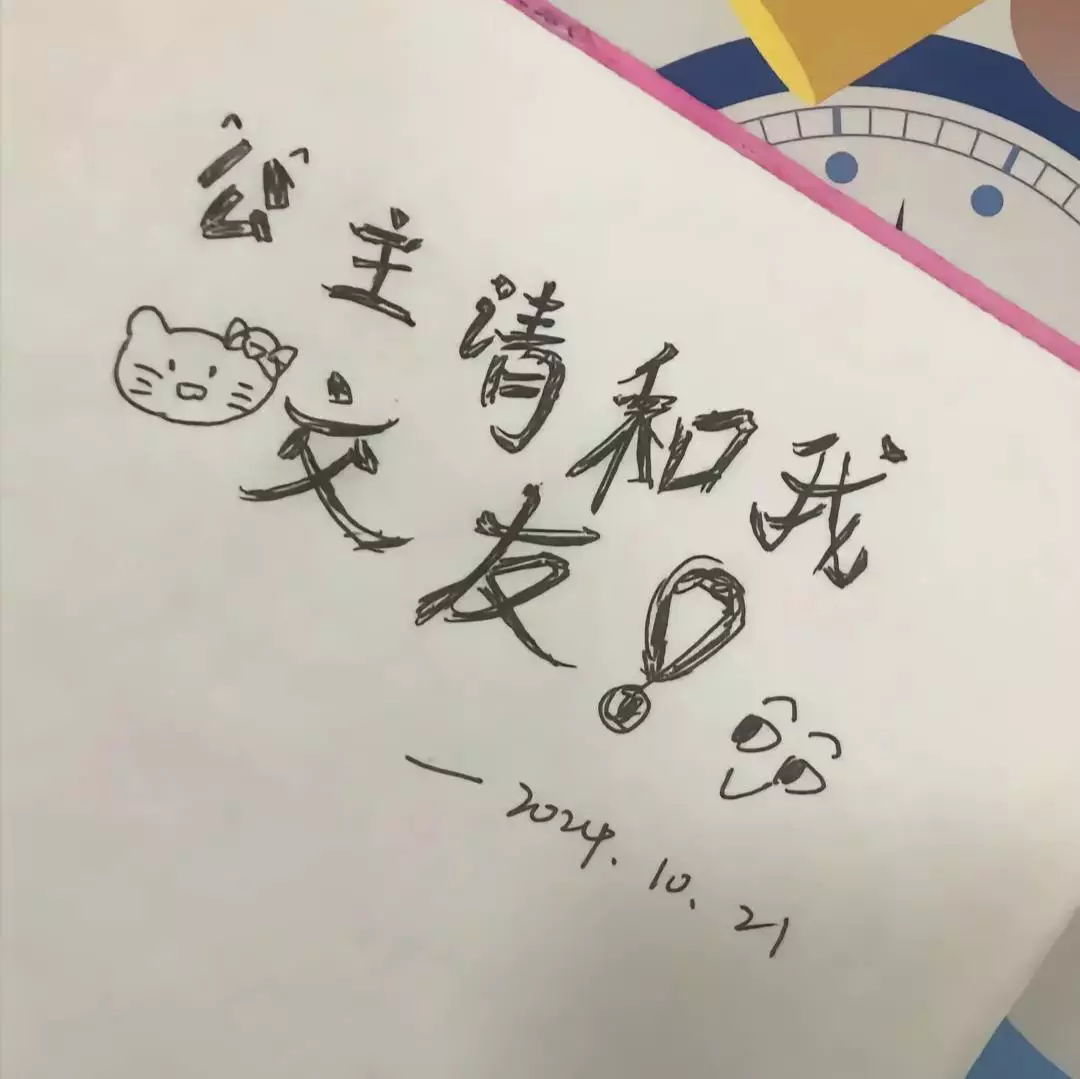 公主请和我
交友!
—2024.10.21